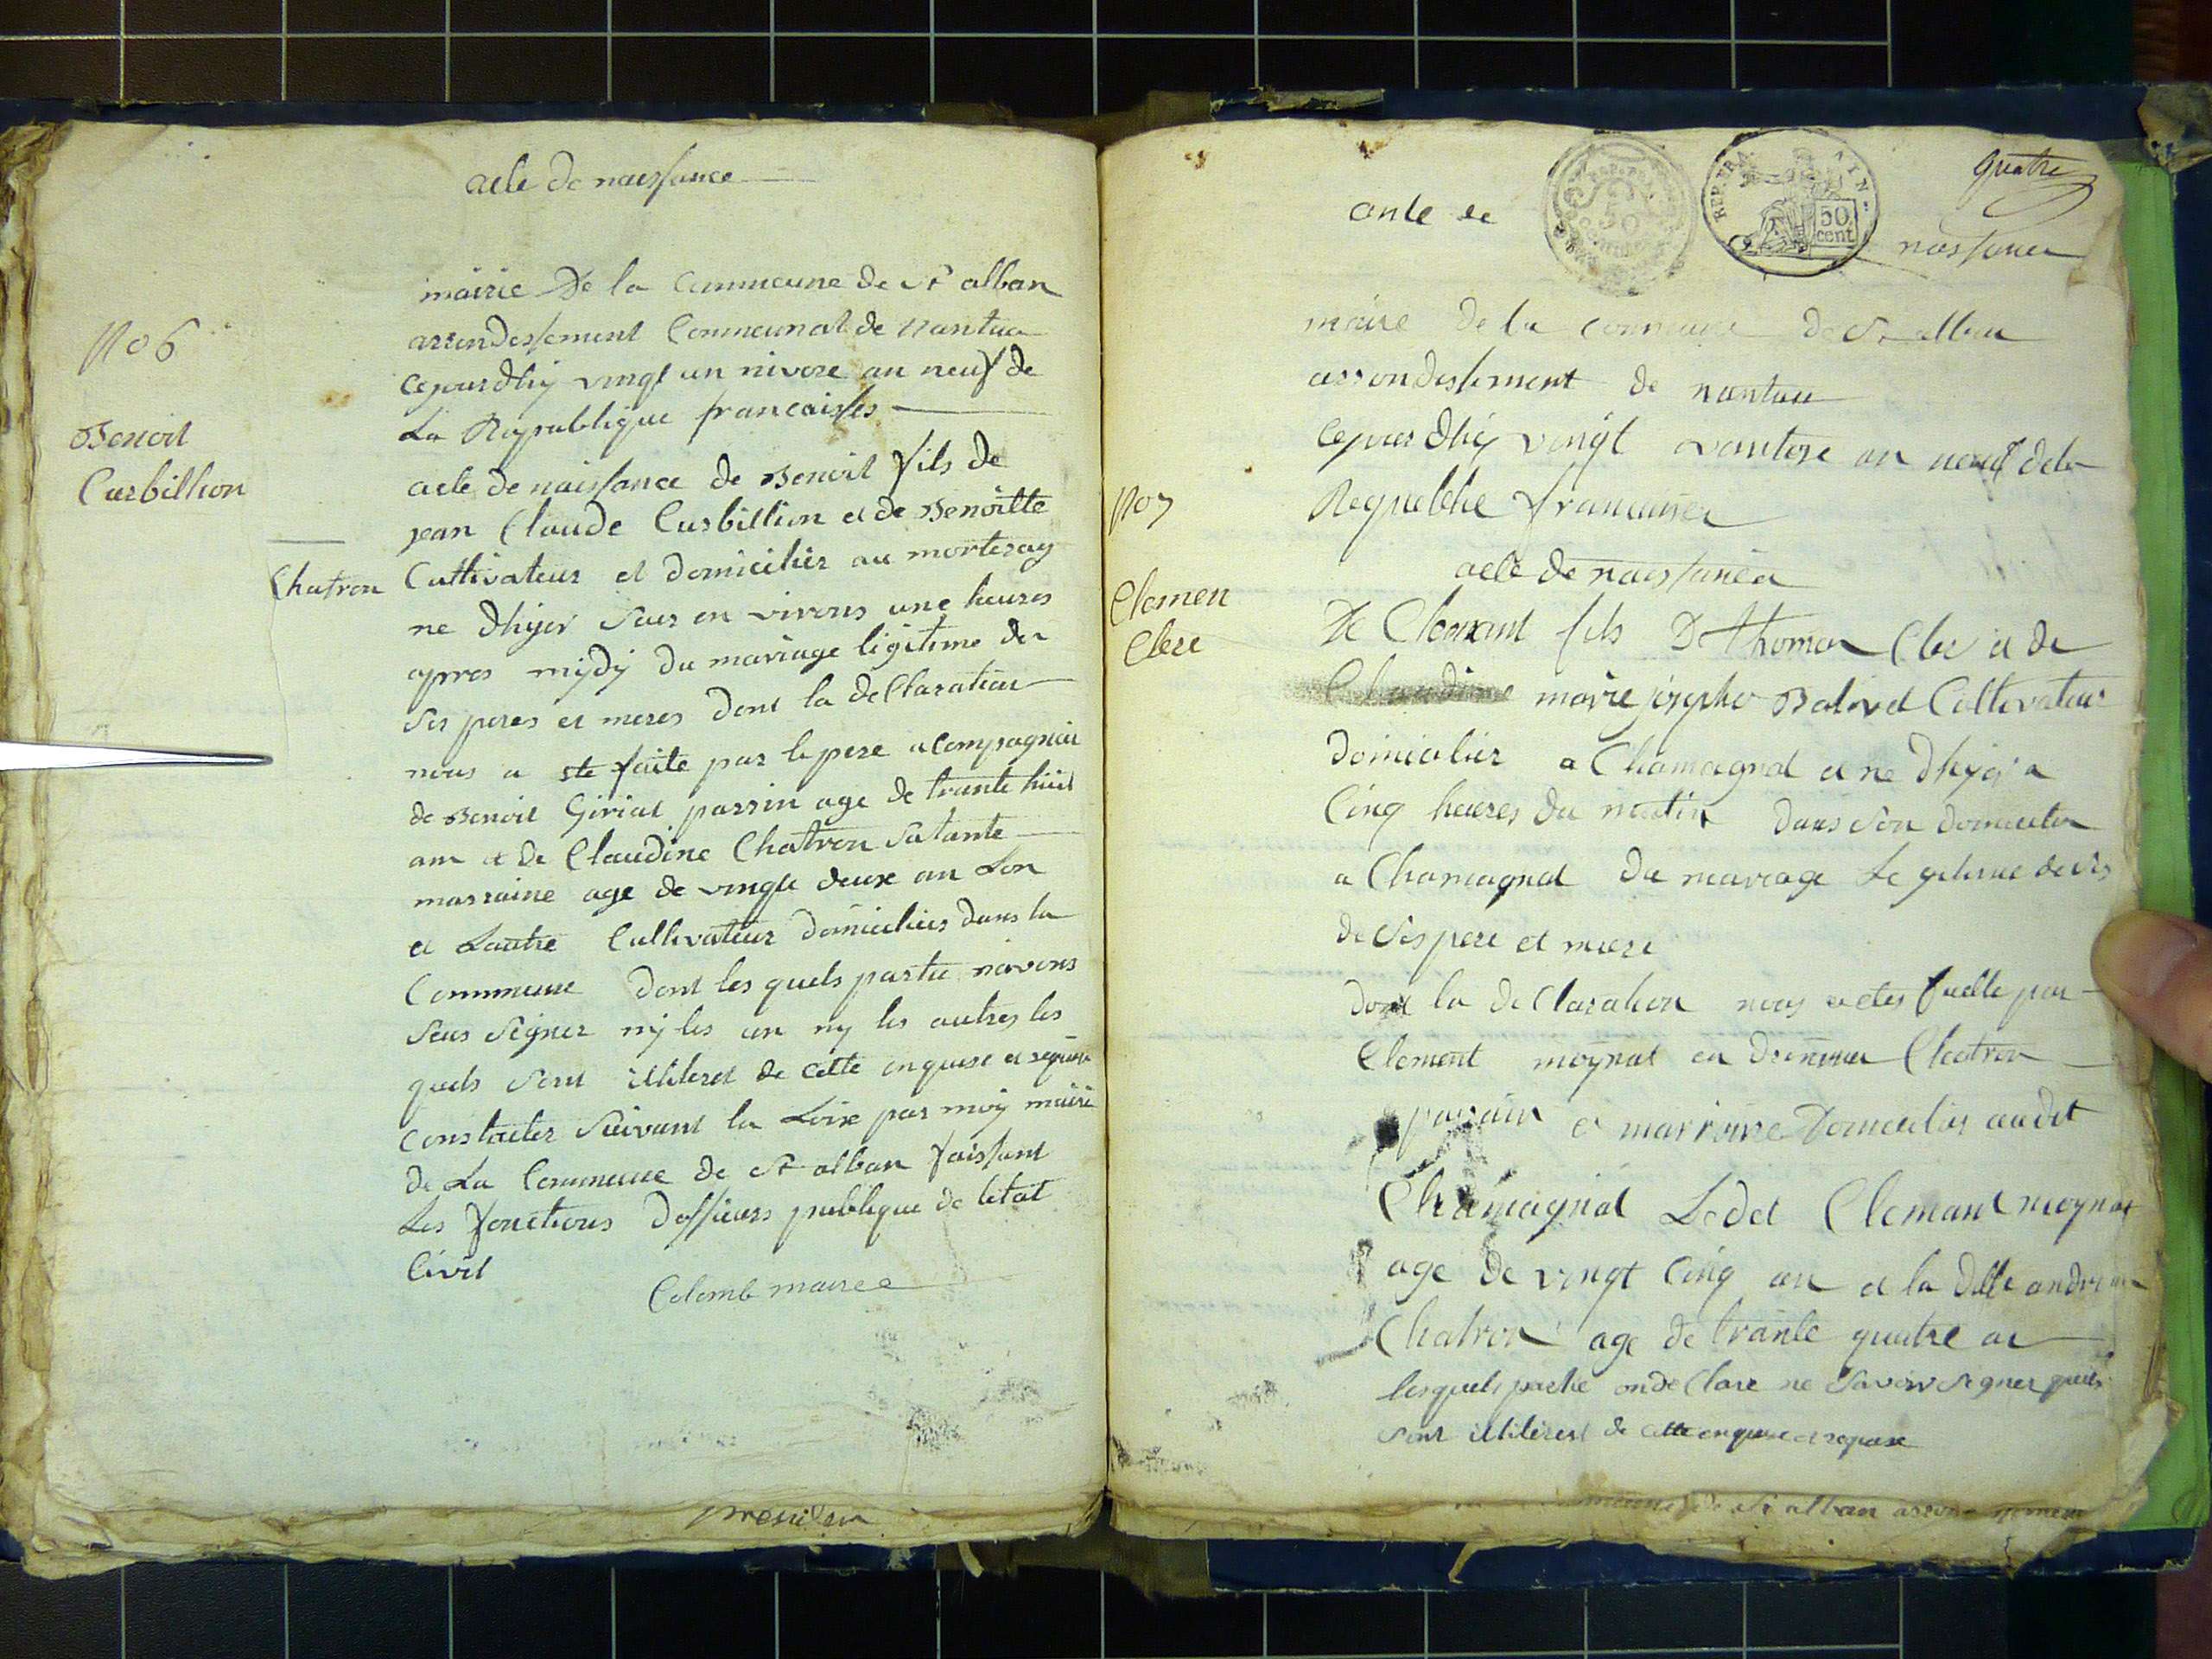 acte de naissance
mairie De la Commeune de St alban
arrondessement Commeunal de nantua
No 6
cejourdhij vingt un nivose an neuf de
La Republique francaisses
Benoit
Curbillion
acte de naissance de Benoit fils de
jean Claude Curbillion et de Benoitte
Chatron
Cultivateur et domicilier au morteray
ne dhyer seur en virons une heures
apres mijdij du mariage ligitime de
ses peres et meres dont la declaration
nous a ete faite par le pere acompagnié
de Benoit Giriat parrin age de trante huit
an et de Claudine Chatron sa tante
marraine age de vingte deux an Lon
et Lautre Cultivateur domicilies dans la
Commeune dont les quels partie navons
seus seigner nij les un ny les autres les
quels sont illiteret de cette enquise et requise
Constater suivant la Loix par moij maire
de La Commeune de St alban faissant
Les fonctions dofficiers publique de letat
Civil
Colomb maire
quatre
REP. FRA
50 cent
acte de
naissance
mairie de la commune de St alban
arrondessement de nantua
cejour dhij vingt vantose an neuf dela
No 7
Republike francaisse
acte de naissance
Clemen
Clere
De Clemant fils De thoma Cler et de
Claudine marie josephe Balivet Coltivateur
Domicilier a Chamagnat et ne dhyer a
Cinq heures du matin dans son domicile
a Chamagnat du mariage Le gitime de ses
de ses pere et mere
dont la declaration nous a etes faitte par
Clement moynat en drienne Chatron
parain et marraine Domicilies audit
Chamagnat Ledet Clemant moynat
age de vingt Cinq an et la ditte andrienne
Chatron age de trante quatre an
lesquels partie on declare ne savoir signer quils
sont illiteret de cette enquise et requise
presiden
de St alban